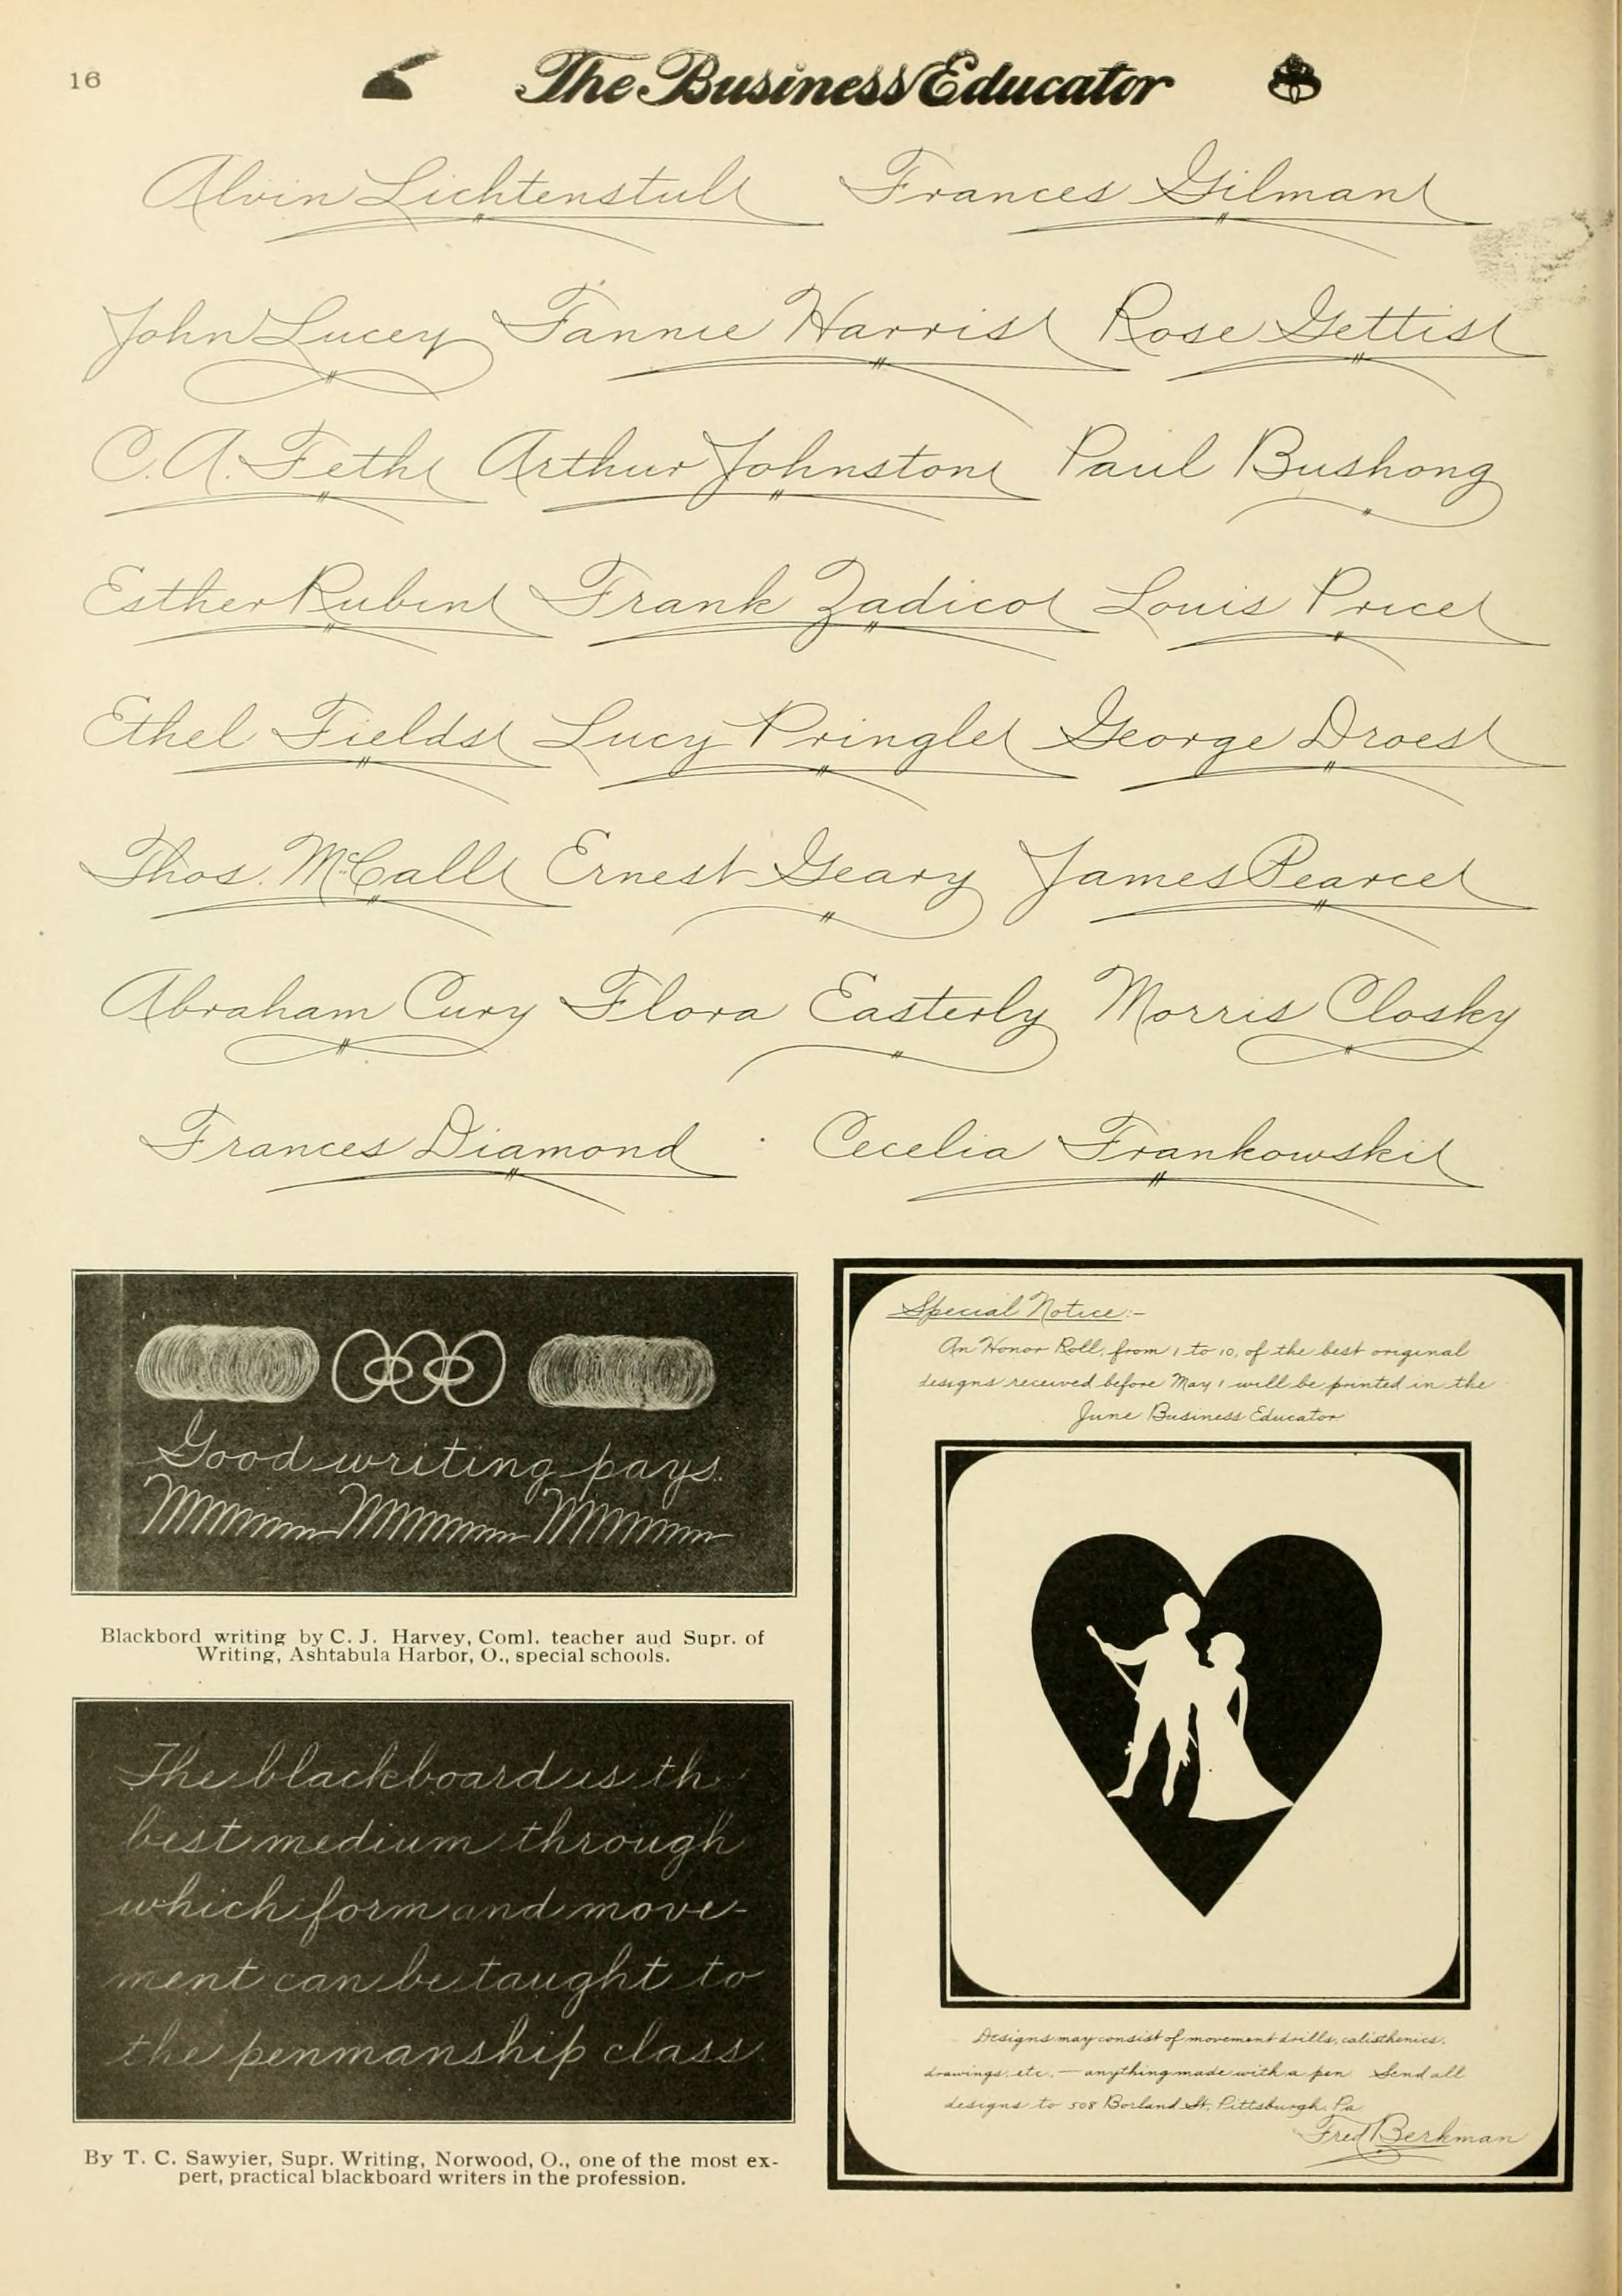 16
The Business Educator
Alvin Lichtenstul Frances Gilman
John Lucey Fannie Harris Rose Gettis
C. A. Feth Arthur Johnston Paul Bushong
Esther Rubin Frank Zadico Louis Price
Ethel Fields Lucy Pringle George Droes
Thos. McCall Ernest Geary James Pearce
Abraham Cury Flora Easterly Morris Closky
Frances Diamond Cecelia Frankowski
Good writing pays.
Blackbord writing by C. J. Harvey, Coml. teacher and Supr. of
Writing, Ashtabula Harbor, O., special schools.
The blackboard is th
best medium through
which form and move-
ment can be taught to
the penmanship class
By T. C. Sawyier, Supr. Writing, Norwood, O., one of the most ex-
pert, practical blackboard writers in the profession.
Special Notice:-
An Honor Roll, from 1 to 10, of the best original
designs received before May 1 will be printed in the
June Business Educator
Designs may consist of movement drills, calisthenics,
drawings, etc. — anything made with a pen Send all
designs to 508 Borland St. Pittsburgh, Pa
Fred Berkman